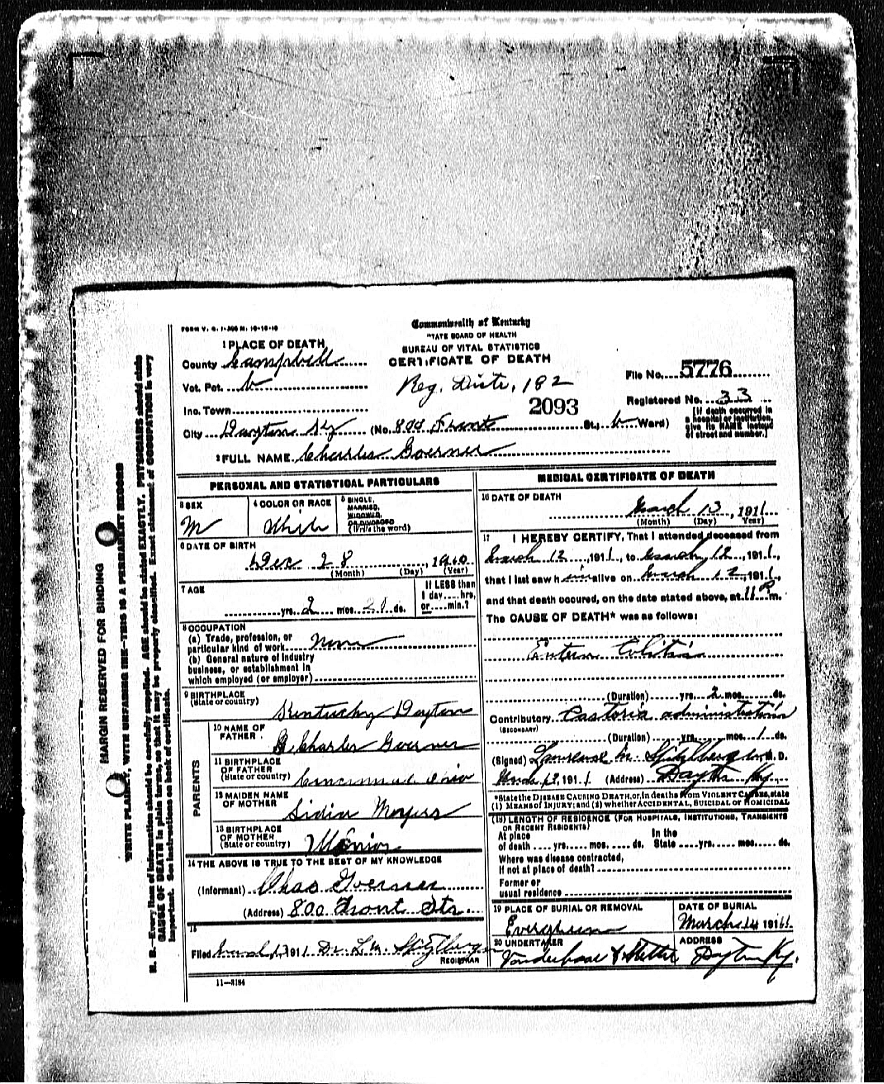 FORM V. S. 1-200 M. 10-18-10
Commonwealth of Kentucky
STATE BOARD OF HEALTH
BUREAU OF VITAL STATISTICS
CERTIFICATE OF DEATH
1 PLACE OF DEATH
County Campbell
Vot. Pct. 6
Inc. Town
City Dayton Ky (No. 800 Front St., 6 Ward)
Reg. Distr. 182
2093
File No. 5776
Registered No. 33
[If death occurred in a hospital or institution, give its NAME instead of street and number.]
2 FULL NAME Charles Goerner
PERSONAL AND STATISTICAL PARTICULARS
3 SEX
M
4 COLOR OR RACE
White
5 SINGLE, MARRIED, WIDOWED, OR DIVORCED (Write the word)
6 DATE OF BIRTH
Dec 28, 1910
(Month) (Day) (Year)
7 AGE
yrs. 2 mos. 21 ds.
If LESS than 1 day....hrs. or....min.?
8 OCCUPATION
(a) Trade, profession, or particular kind of work None
(b) General nature of industry business, or establishment in which employed (or employer)
9 BIRTHPLACE
(State or country)
Kentucky Dayton
PARENTS
10 NAME OF FATHER
Charles Goerner
11 BIRTHPLACE OF FATHER
(State or country)
Cincinnati Ohio
12 MAIDEN NAME OF MOTHER
Moyers
13 BIRTHPLACE OF MOTHER
(State or country)
14 THE ABOVE IS TRUE TO THE BEST OF MY KNOWLEDGE
(Informant) Chas Goerner
(Address) 800 Front Str
15
Filed March 13, 1911 Dr. L. M.
REGISTRAR
11-3184
MEDICAL CERTIFICATE OF DEATH
16 DATE OF DEATH
March 13, 1911
(Month) (Day) (Year)
17 I HEREBY CERTIFY, That I attended deceased from
March 12, 1911, to March 12, 1911,
that I last saw him alive on March 12, 1911,
and that death occured, on the date stated above, at 11 P m.
The CAUSE OF DEATH* was as follows:
Entero Colitis
(Duration) yrs. 2 mos. ds.
Contributory Castoria administration
(SECONDARY)
(Duration) yrs. mos. 1 ds.
(Signed) Lawrence M. M. D.
1911 (Address) Dayton Ky.
*State the DISEASE CAUSING DEATH, or, in deaths from VIOLENT CAUSES, state (1) MEANS OF INJURY; and (2) whether ACCIDENTAL, SUICIDAL OR HOMICIDAL
(18) LENGTH OF RESIDENCE (FOR HOSPITALS, INSTITUTIONS, TRANSIENTS OR RECENT RESIDENTS)
At place of death yrs. mos. ds. In the State yrs. mos. ds.
Where was disease contracted, if not at place of death?
Former or usual residence
19 PLACE OF BURIAL OR REMOVAL
Evergreen
DATE OF BURIAL
March 14 1911
20 UNDERTAKER
ADDRESS
Dayton Ky.
MARGIN RESERVED FOR BINDING
WRITE PLAINLY, WITH UNFADING INK—THIS IS A PERMANENT RECORD
N. B.—Every item of information should be carefully supplied. AGE should be stated EXACTLY. PHYSICIANS should state CAUSE OF DEATH in plain terms, so that it may be properly classified. Exact statement of OCCUPATION is very important. See instructions on back of certificate.